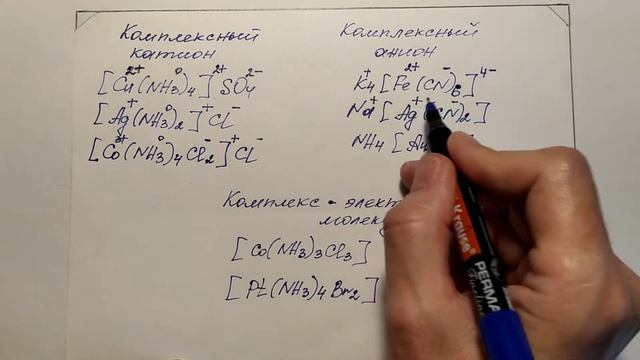 Комплексный
катион
[Cu²⁺(NH₃)⁰₄]²⁺SO₄²⁻
[Ag⁺(NH₃)⁰₂]⁺Cl⁻
[Co³⁺(NH₃)⁰₄Cl₂⁻]⁺Cl⁻
Комплексный
анион
K₄⁺[Fe²⁺(CN)⁻₆]⁴⁻
Na⁺[Ag⁺(CN)⁻₂]
NH₄[Au
Комплекс - элект
молек
[Co(NH₃)₃Cl₃]
[Pt(NH₃)₄Br₂]
Krause
PERMA